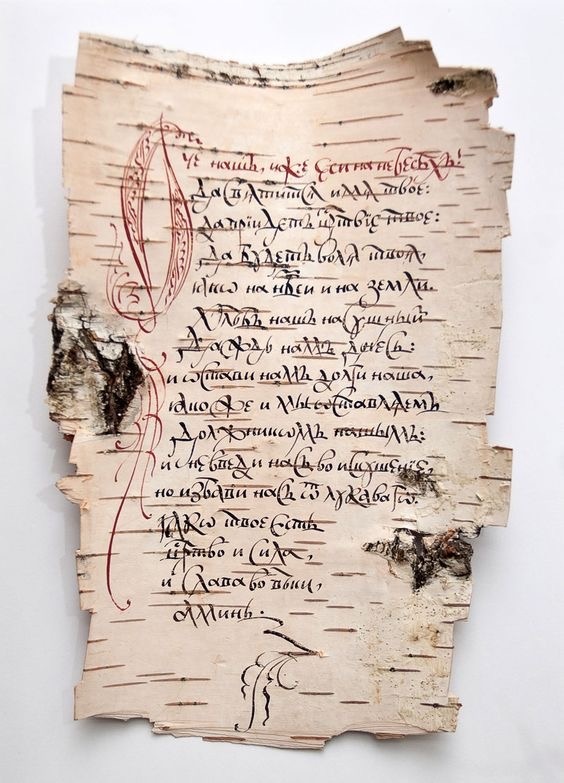 Отче нашъ, иже еси на небесѣхъ!
Да свѧтитсѧ имѧ твое:
да прїидетъ цртвїе твое:
да бꙋдетъ волѧ твоѧ,
ꙗкѡ на нб҃си и на земли.
Хлѣбъ нашъ насꙋщный
даждь намъ днесь:
и ѡстави намъ долги наша,
ꙗкоже и мы ѡставлѧемъ
должникѡмъ нашымъ:
и не введи насъ во искꙋшенїе,
но избави насъ ѿ лꙋкавагѡ.
ꙗкѡ твое есть
црство и сила,
и слава во вѣки,
аминь.